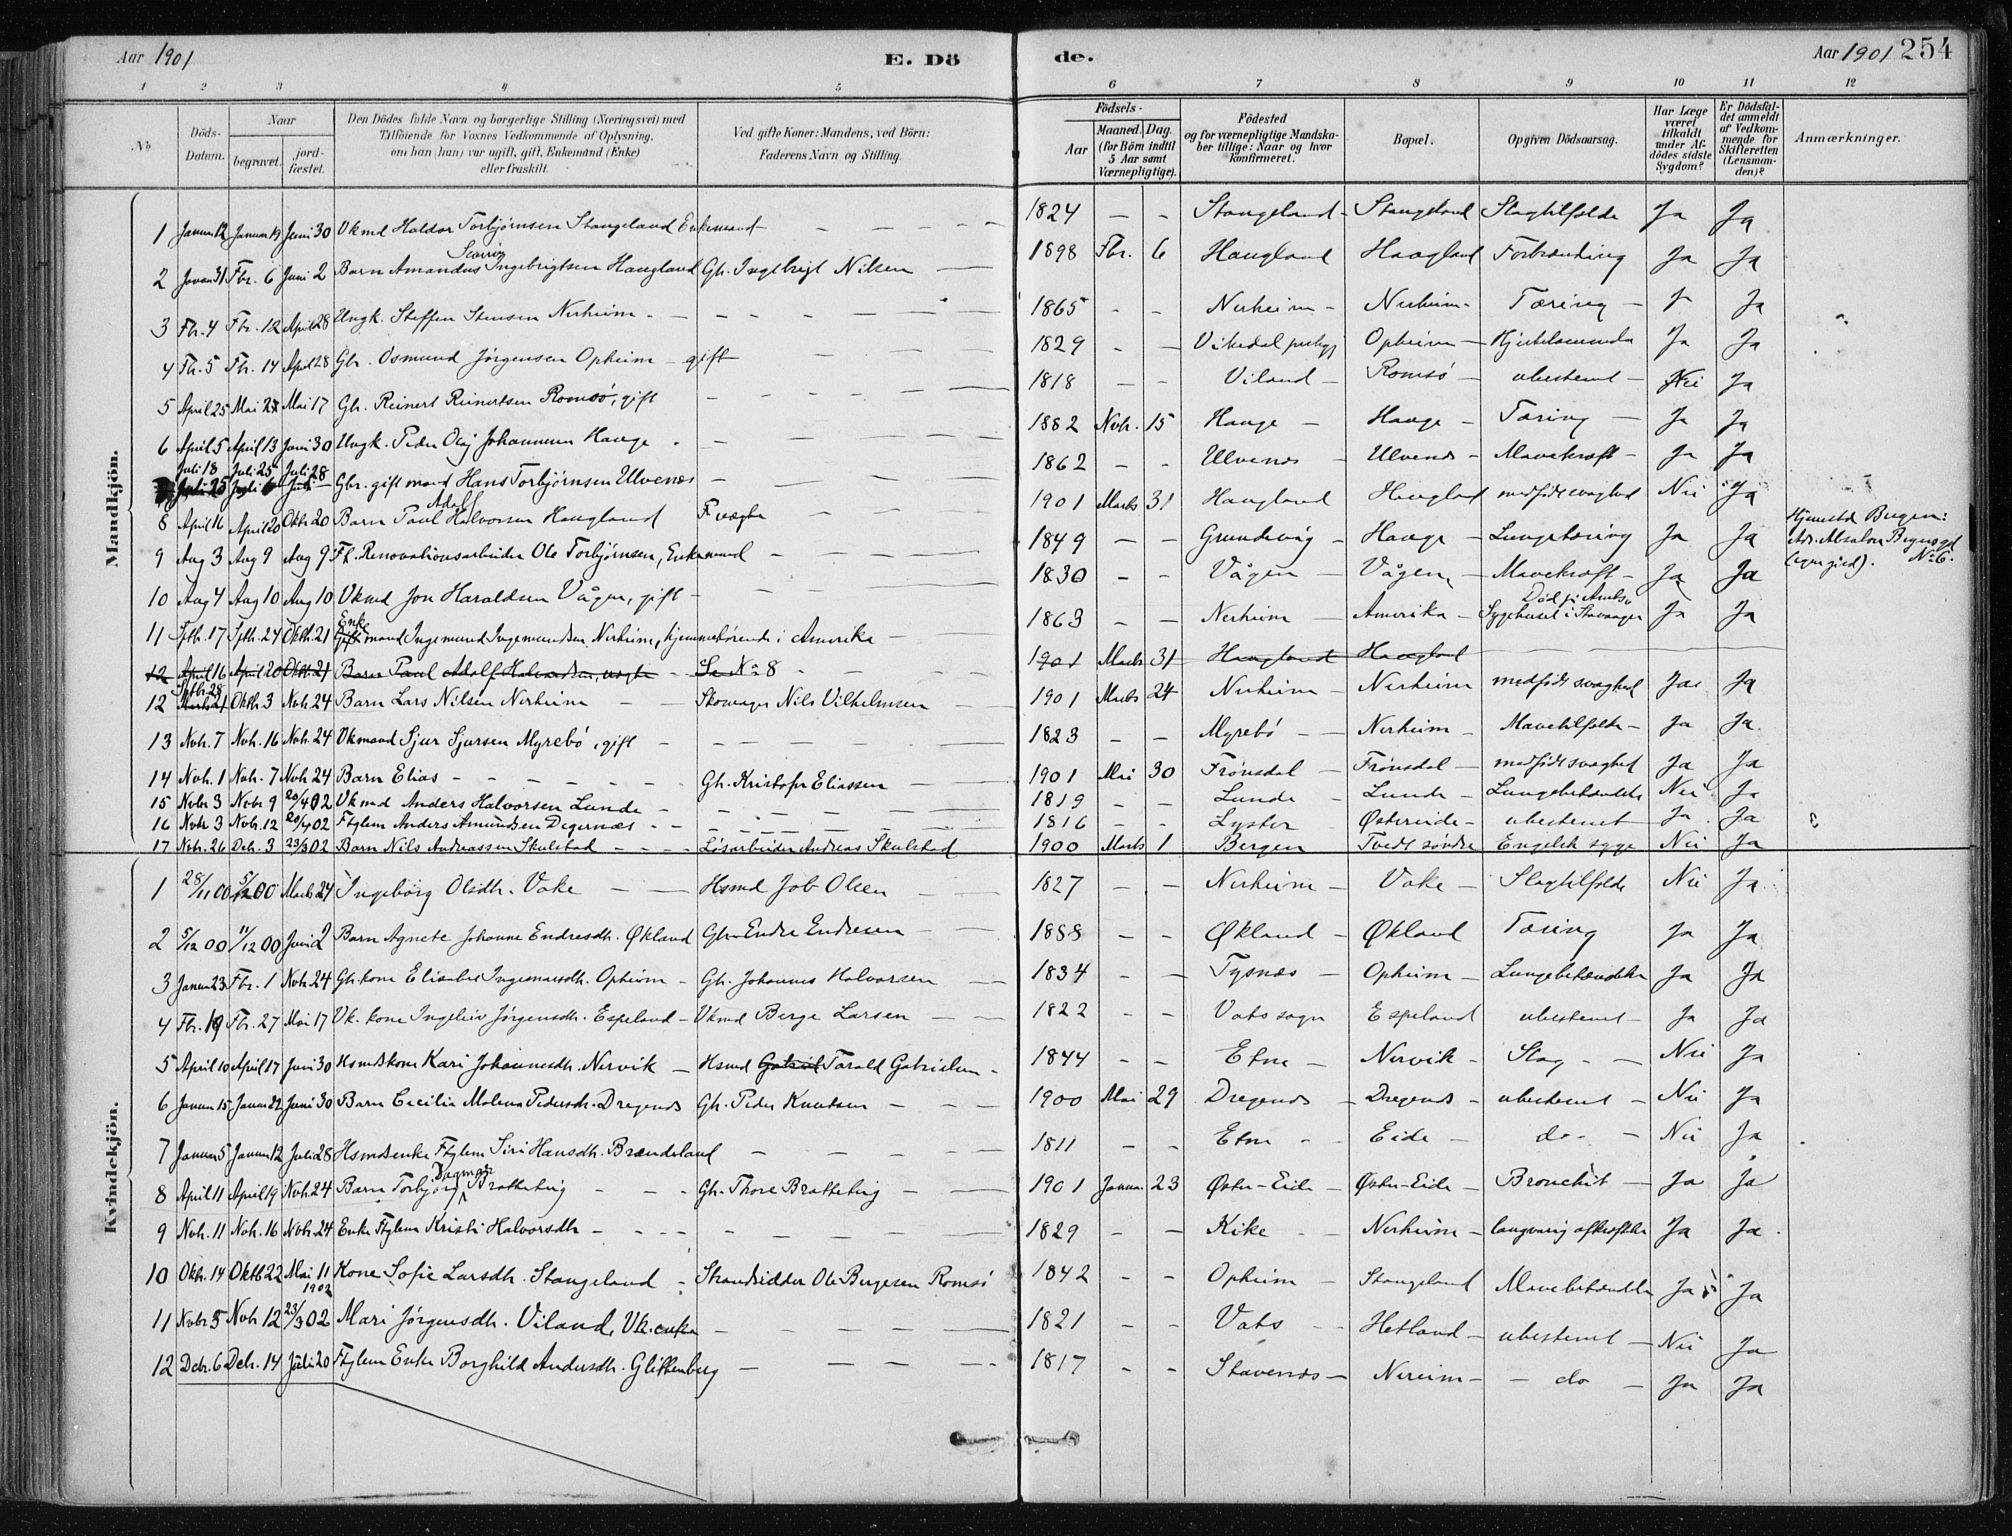 Aar 1901
E. Dö
de.
Aar 1901 254
1 2 3 4 5 6 7 8 9 10 11 12
No
Döds-Datum.
Naar
begravet.
jord-fæstet.
Den Dödes fulde Navn og borgerlige Stilling (Næringsvei) med
Tilföiende for Voxnes Vedkommende af Oplysning,
om han (hun) var ugift, gift, Enkemand (Enke)
eller fraskilt.
Ved gifte Koner: Mandens, ved Börn:
Faderens Navn og Stilling.
Födsels-
Aar
Maaned. Dag.
(for Börn indtil 5 Aar samt Værnepligtige).
Födested
og for værnepligtige Mandska-
ber tillige: Naar og hvor
konfirmeret.
Bopæl.
Opgiven Dödsaarsag.
Har Læge været tilkaldt under Af-dödes sidste Sygdom?
Er Dödsfal-det anmeldt af Vedkom-mende for Skifteretten (Lensman-den)?
Anmærkninger.
Mandkjön.
1 Januar 12 Januar 19 Juni 30 Vkmd Haldor Torbjørnsen Stangeland Enkemand 1824 - - Stangeland Stangeland Slagtilfælde Ja Ja
2 Januar 31 Fbr. 6 Juni 2 Barn Amandus Ingebrigtsen Haugland Gb. Ingebrigt Nilsen 1898 Fbr. 6 Haugland Haugland Forbrænding Ja Ja
3 Fbr. 4 Fbr. 12 April 28 Ungk. Steffen Stensen Nerheim 1865 - - Nerheim Nerheim Tæring Ja Ja
4 Fbr. 5 Fbr. 14 April 28 Gbr. Osmund Jørgensen Opheim gift 1829 - - Vikedal prestgj Opheim Ja Ja
5 April 25 Mai Mai 17 Gb. Reinert Reinertsen Romsö, gift 1818 - - Viland Romsö ubestemt Nei Ja
6 April 5 April 13 Juni 30 Ungk. Peder Olaj Johannesen Hauge 1882 Novb. 15 Hauge Hauge Tæring Ja Ja
Juli 18 Juli 25 Juli 28 Gbr. gift mand Hans Torbjørnsen Ulvenæs 1862 - - Ulvenæs Ulvenæs Mavekræft Ja Ja
8 April 16 April 20 Oktb 20 Barn Paul Adolf Halvorsen Haugland F. uægte 1901 Marts 31 Haugland Haugland medfödt svaghed Nei Ja
9 Aug 3 Aug 9 Aug 9 Fl. Renovationsarbeider Ole Torbjørnsen, Enkemand 1849 - - Grundevåg Hauge Lungetæring Ja Ja Hjemsted Bergen:
Adr. Absalon Beyersgd
(egen gård). No 6.
10 Aug 4 Aug 10 Aug 10 Vkmd Jon Haraldsen Vågen, gift 1830 - - Vågen Vågen Mavekræft Ja Ja
11 Sptb. 17 Sptb. 24 Oktb. 21 Enke mand Ingemund Ingemundsen Nerheim, hjemmehörende i Amerika 1863 Nerheim Amerika Död på Amts Sygehuset i Stavanger Ja Ja
12 April 16 April 20 Oktb. 21 Barn Paul Adolf Halvorsen, uægte Se No 8 1901 Marts 31 Haugland Haugland
12 Sptbr. 28 Oktb. 3 Novb. 24 Barn Lars Nilsen Nerheim Skomager Nils Vilhelmsen 1901 Marts 24 Nerheim Nerheim medfödt svaghed Ja Ja
13 Novb. 7 Novb. 16 Novb. 24 Vkmand Sjur Sjursen Myrebö, gift 1823 - - Myrebö Nerheim Mavetilfælde Ja Ja
14 Novb. 1 Novb. 7 Novb 24 Barn Elias Gb. Kristofer Eliassen 1901 Mai 30 Frönsdal Frönsdal medfödt svaghed Ja Ja
15 Novbr 3 Novbr 9 20/4 02 Vkmd Anders Halvorsen Lunde 1819 - - Lunde Lunde Lungebetændelse Nei Ja
16 Novbr 3 Novbr. 12 20/4 02 Ftglem Anders Amundsen Degernæs 1816 - - Lyster Østereide ubestemt Ja Ja
17 Novbr. 26 Decb. 3 23/3 02 Barn Nils Andreassen Skulstad Lösarbeider Andreas Skulstad 1900 Marts 1 Bergen Tvedt söndre Engelsk syge Nei Ja
Kvindekjön.
1 28/11 00 5/12 00 Marts 24 Ingeborg Olsdtr. Vake Hsmd Job Olsen 1827 - - Nerheim Vake Slagtilfælde Nei Ja
2 5/12 00 11/12 00 Juni 2 Barn Agnete Johanne Endresdtr. Økland Gbr. Endre Endresen 1888 - - Økland Økland Tæring Ja Ja
3 Januar 23 Fbr. 1 Novb. 24 Gb. kone Elisabet Ingemarsdtr. Opheim Gb. Johannes Halvorsen 1834 - - Tysnæs Opheim Lungebetændelse Ja Ja
4 Fbr. 19 Fbr. 27 Mai 17 Vk. kone Ingeleiv Jørgensdtr. Espeland Vkmd Berge Larsen 1822 - - Vats sogn Espeland ubestemt Ja Ja
5 April 10 April 17 Juni 30 Hsmdskone Kari Johannesdtr. Nervik Hsmd Gabriel Tarald Gabrielsen 1844 - - Etne Nervik Slag Nei Ja
6 Januar 15 Januar 22 Juni 30 Barn Cecilia Malena Pedersdtr. Dregenæs Gb. Peder Knutsen 1900 Mai 29 Dregenæs Dregenæs ubestemt Nei Ja
7 Januar 5 Januar 12 Juli 28 Hsmdsenke Ftglem Siri Hansdtr. Brændeland 1811 - - Etne Eide do Nei Ja
8 April 11 April 19 Novb. 24 Barn Torbjörg Dagmar Bratteteig Gb. Thore Bratteteig 1901 Januar 23 Øster-Eide Øster-Eide Bronchit Ja Ja
9 Novb. 11 Novb. 16 Novbr. 24 Enke Ftglem Kristi Halvorsdtr 1829 - - Kike Nerheim langvarig afkræftelse Ja Ja
10 Oktb. 14 Oktb 22 Mai 11 1902 Kone Sofie Larsdtr. Stangeland Strandsidder Ole Bergesen Romsö 1842 - - Opheim Stangeland Mavebetændelse Ja Ja
11 Novbr 5 Novb 12 23/3 02 Mari Jørgensdtr. Viland, Vk. enke 1821 - - Vats Hetland ubestemt Nei Ja
12 Decbr. 6 Decb. 14 Juli 20 Ftglem Enke Borghild Andersdtr. Glittenberg 1817 - - Stavenæs Nereim do Ja Ja